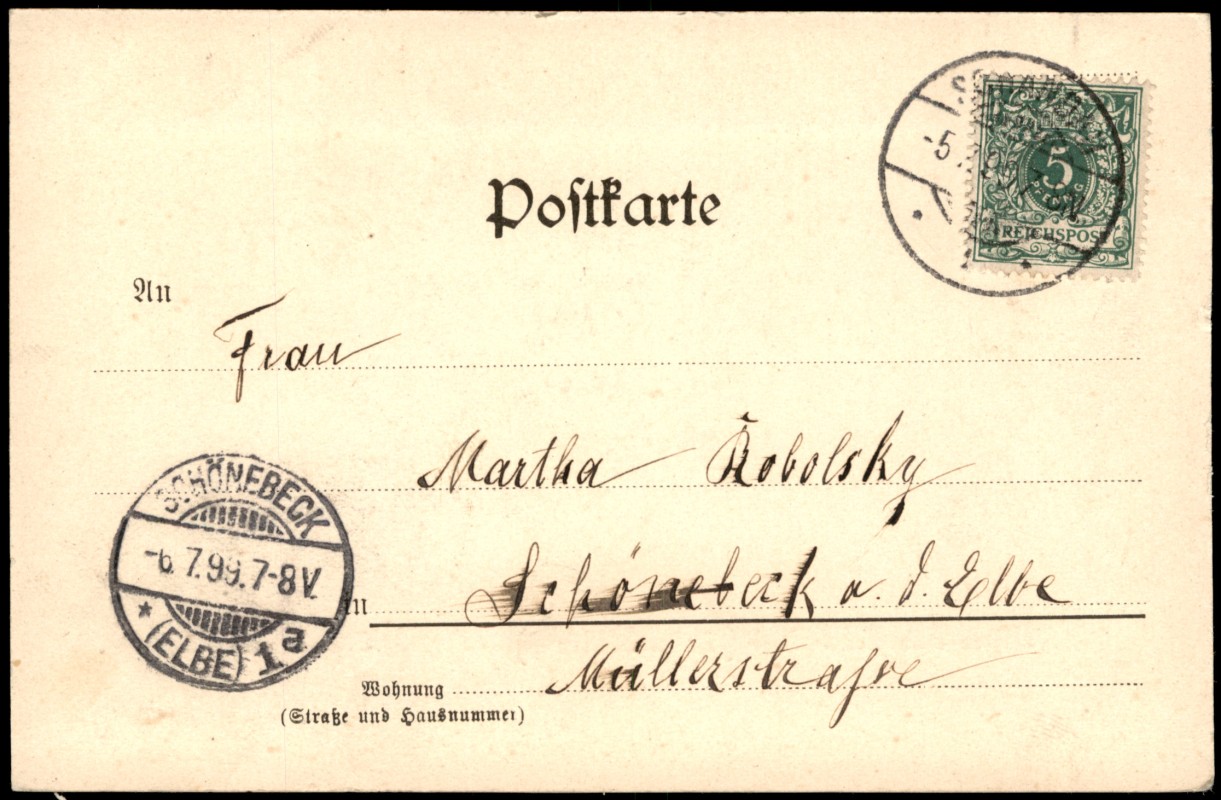 Postkarte
5
REICHSPOST
An
Frau
Martha Robolsky
SCHÖNEBECK
-6.7.99.7-8V.
(ELBE) 1a
in Schönebeck a. d. Elbe
Wohnung Müllerstrasse
(Straße und Hausnummer)